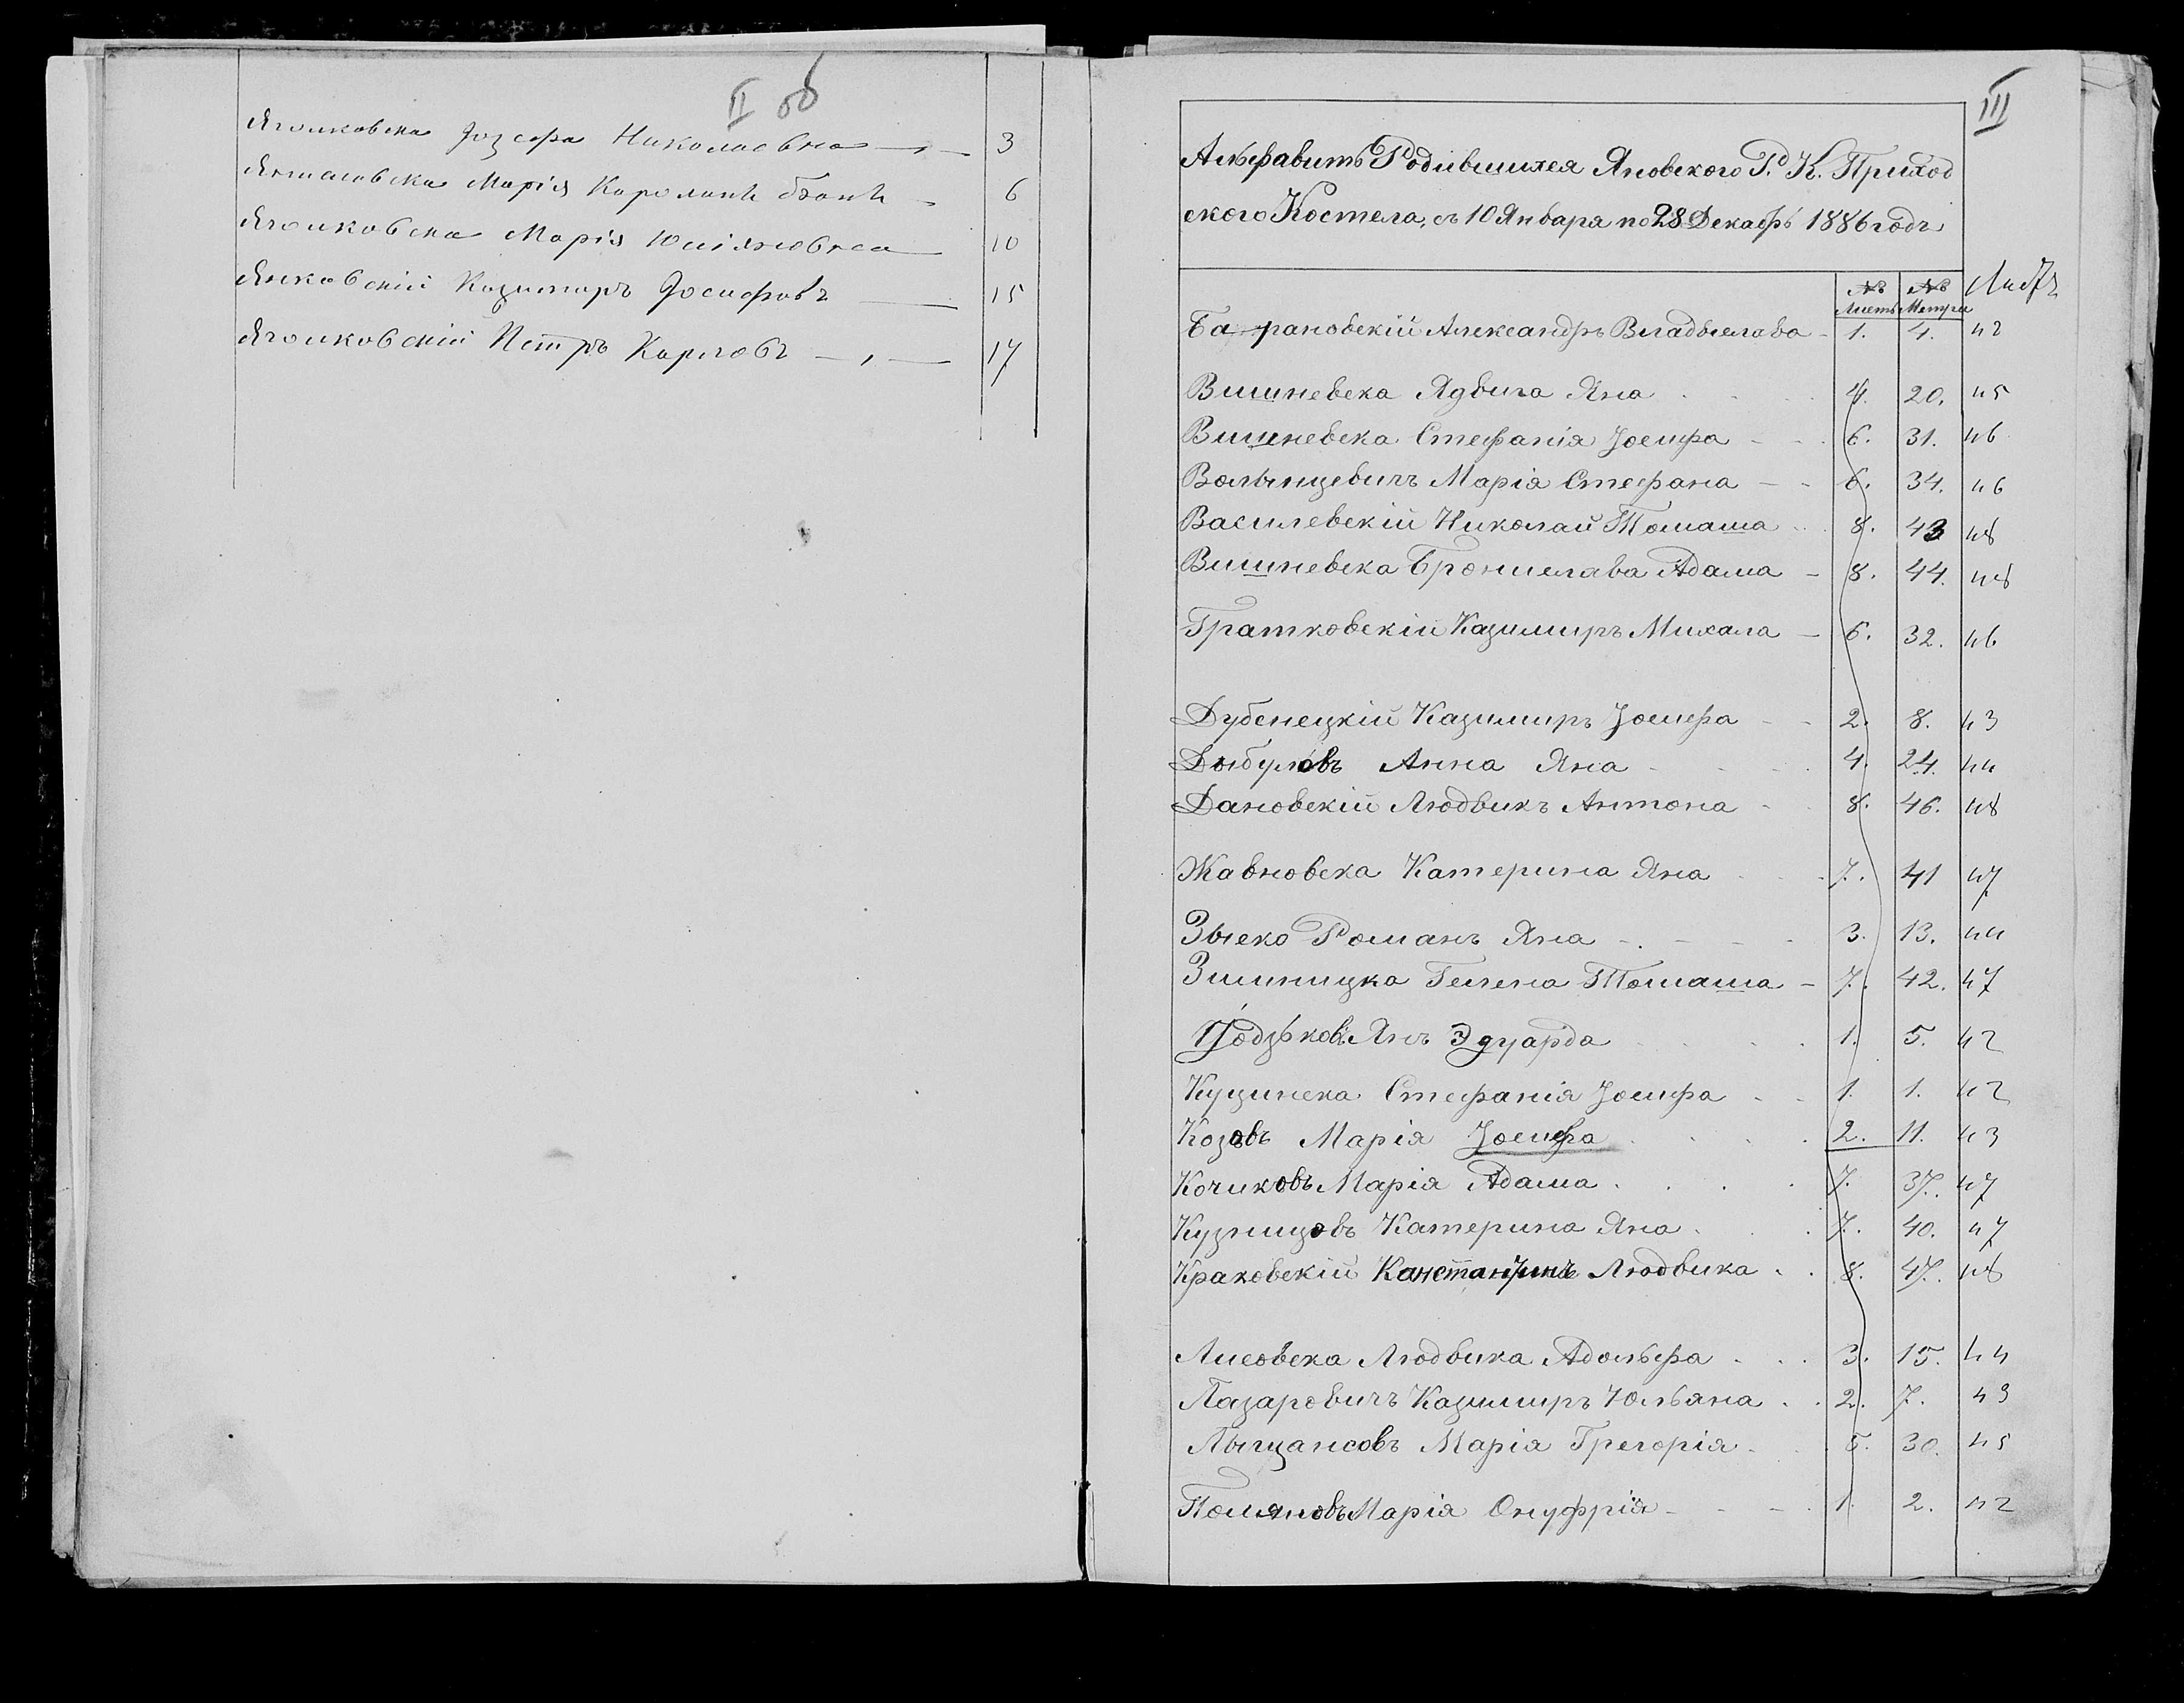 II об
Яголковска Іозефа Николаевна 3
Марія 6
Яголковска Марія Юліяновна 10
Янковскій Казимиръ Іосифовъ 15
Яголковскій Петръ Карловъ 17
III
Альфавитъ Родившихся Яновского Р. К. Приход
ского Костела, съ 10 Января по 28 Декабрь 1886 годъ
№ Листъ № Метри Листъ
Барановскій Александръ Владыслава 1. 4. 42
Вишневска Ядвига Яна 4. 20. 45
Вишневска Стефанія Іосифа 6. 31. 46
Волынцевичъ Марія Стефана 6. 34. 46
Василевскій Николай Томаша 8. 43 48
Вишневска Бронислава Адама 8. 44. 48
Гратковскій Казимиръ Михала 6. 32. 46
Дубенецкій Казимиръ Іосифа 2. 8. 43
Дыбуловъ Анна Яна 4. 24. 44
Дановскій Людвикъ Антона 8. 46. 48
Жавновска Катерина Яна 7. 41 47
Зыско Романъ Яна 3. 13. 44
Зимницка Гелена Томаша 7. 42. 47
Янъ Эдуарда 1. 5. 42
Куцинска Стефанія Іосифа 1. 1. 42
Козовъ Марія Іосифа 2. 11. 43
Кочиковъ Марія Адама 7. 37. 47
Кузницовъ Катерина Яна 7. 40. 47
Краковскій Канстантинъ Людвика 8. 47. 48
Лисовска Людвика Адольфа 3. 15. 44
Лазаровичъ Казимиръ Юльяна 2. 7. 43
Марія Грегорія 5. 30. 45
Помяновъ Марія Онуфрія 1. 2. 42